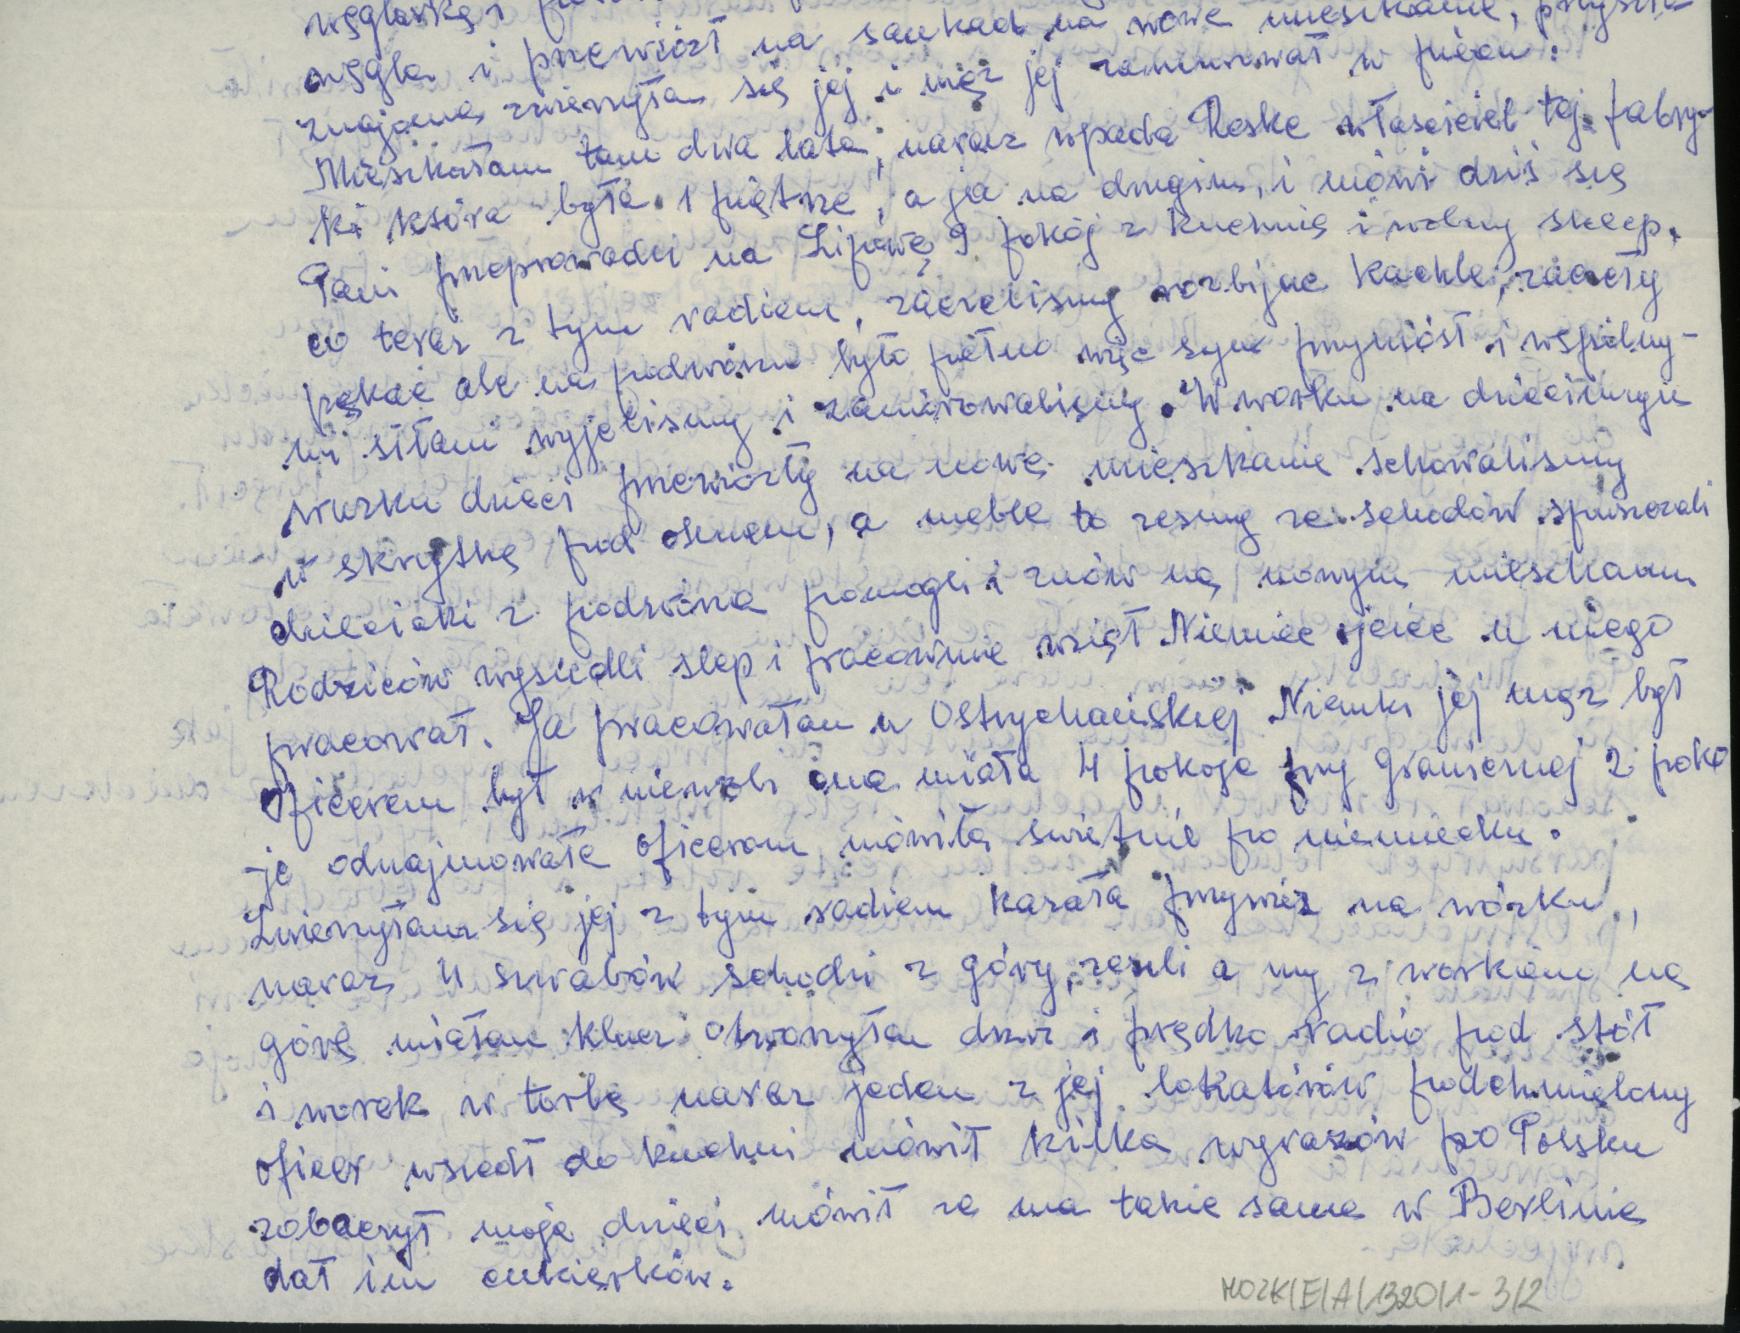 węglarkę i
węgla i przewiózł na sankach na nowe mieszkanie, przyszła
znajoma zwierzyłam się jej i mąż jej zamurował w piecu.
Mieszkałam tam dwa lata, naraz wpada Roske właściciel tej fabry-
ki która była 1 piętrze, a ja na drugim, i mówi dziś się
Pani przeprowadzi na Lipową 9 pokój z kuchnią i wolny sklep.
co teraz z tym radiem, zaczeliśmy rozbijać kachle, zaczęły
pękać ale na podwórzu było płótno więc syn przyniósł i wspólny-
mi siłami wyjeliśmy i zamurowaliśmy. W worku na dziecinnym
wuzku dzieci przewiozły na nowe mieszkanie schowaliśmy
w skrytkę pod oknem, a meble to zesmy ze schodów spuszczali
dzieciaki z podwórza pomogli i znów na nowym mieszkaniu
Rodziców wysiedli slep i pracownie wziął Niemiec ojciec u niego
pracował. Ja pracowałam u Ostrychańskiej Niemki jej mąż był
Oficerem był w niewoli ona miała 4 pokoje przy Granicznej 2 poko
-je odnajmowała oficerom mówiła swietnie po niemiecku.
Zwierzyłam się jej z tym radiem kazała przywież na wózku,
naraz 4 szwabów schodzi z góry, zeszli a my z workiem na
górę miałam klucz otworzyłam drzwi i prędko radio pod stół
i worek w torbę naraz jeden z jej lokatorów podchmielony
oficer wszedł do kuchni mówił kilka wyrazów po Polsku
zobaczył moje dzieci mówił ze ma takie same w Berlinie
dał im cukierków.
MOZK/E/A/1320/1-3/2